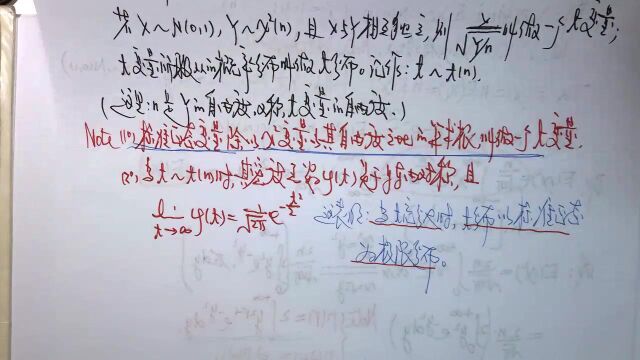 若X~N(0,1), Y~χ²(n), 且X与Y相互独立, 则 X/√(Y/n) 叫做一个t变量;
t变量所服从的概率分布叫做t分布。记作: t~t(n).
(这里: n是Y的自由度, 亦称t变量的自由度.)
Note (1) 标准正态变量除以χ²变量与其自由度之比的平方根, 叫做一个t变量.
(2) 当t~t(n)时, 其密度函数φ(t)关于y轴对称, 且
lim t→∞ φ(t) = 1/√2π e^(-t²/2)
这表明: 当 时, t分布以标准正态
为极限分布。